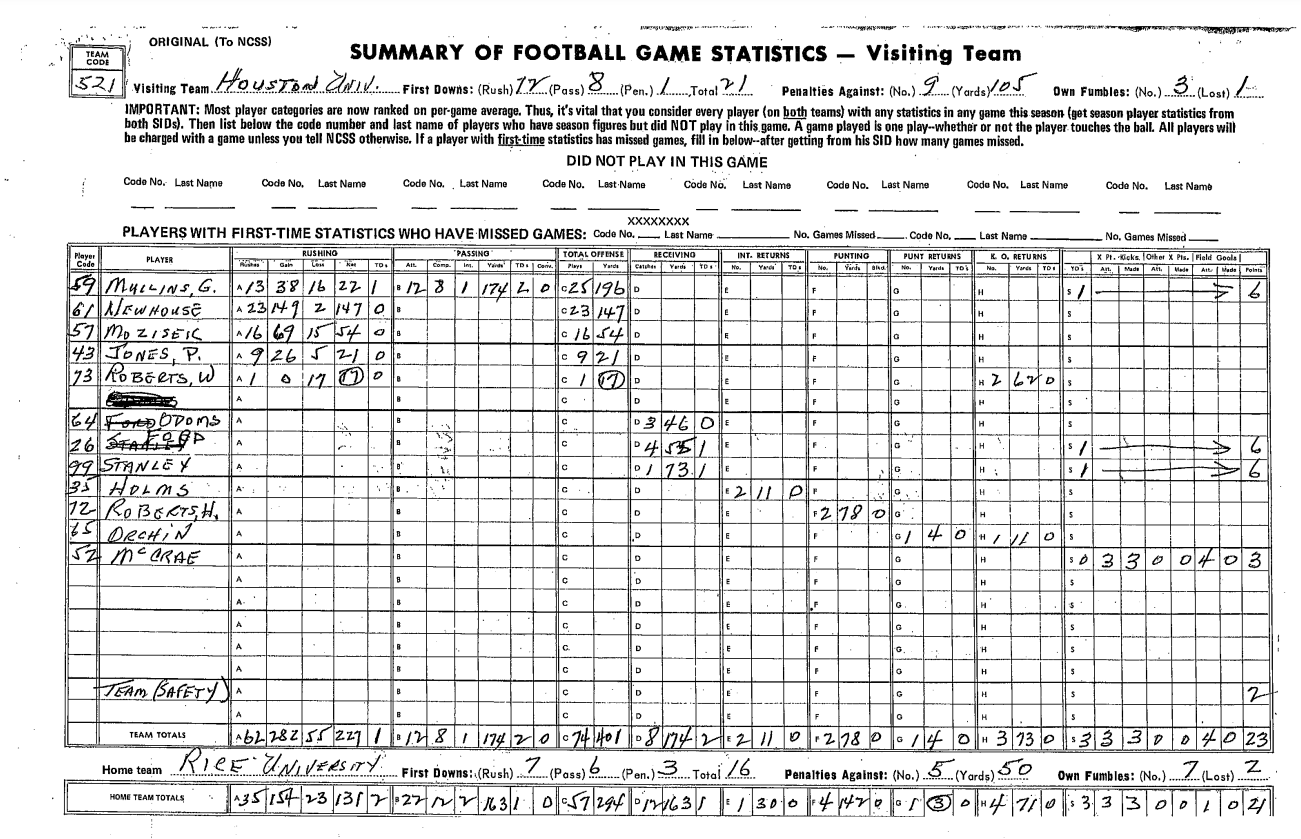 ORIGINAL (To NCSS)
TEAM CODE
521
SUMMARY OF FOOTBALL GAME STATISTICS — Visiting Team
Visiting Team HOUSTON UNIV. First Downs: (Rush) 12 (Pass) 8 (Pen.) 1 Total 21 Penalties Against: (No.) 9 (Yards) 105 Own Fumbles: (No.) 3 (Lost) 1
IMPORTANT: Most player categories are now ranked on per-game average. Thus, it's vital that you consider every player (on both teams) with any statistics in any game this season (get season player statistics from
both SIDs). Then list below the code number and last name of players who have season figures but did NOT play in this game. A game played is one play--whether or not the player touches the ball. All players will
be charged with a game unless you tell NCSS otherwise. If a player with first-time statistics has missed games, fill in below--after getting from his SID how many games missed.
DID NOT PLAY IN THIS GAME
Code No. Last Name Code No. Last Name Code No. Last Name Code No. Last Name Code No. Last Name Code No. Last Name Code No. Last Name Code No. Last Name
XXXXXXXX
PLAYERS WITH FIRST-TIME STATISTICS WHO HAVE MISSED GAMES: Code No. Last Name No. Games Missed Code No. Last Name No. Games Missed
Player Code PLAYER RUSHING PASSING TOTAL OFFENSE RECEIVING INT. RETURNS PUNTING PUNT RETURNS K. O. RETURNS X Pt. Kicks Other X Pts. Field Goals
Rushes Gain Loss Net TDs Att. Comp. Int. Yards TDs Conv. Plays Yards Catches Yards TDs No. Yards TDs No. Yards Blkd. No. Yards TD's No. Yards TDs TD's Att. Made Att. Made Att. Made Points
59 MULLINS, G. A 13 38 16 22 1 B 12 8 1 174 2 0 C 25 196 D E F G H S 1 6
61 NEWHOUSE A 23 149 2 147 0 B C 23 147 D E F G H S
57 MOZISEK A 16 69 15 54 0 B C 16 54 D E F G H S
43 JONES, P. A 9 26 5 21 0 B C 9 21 D E F G H S
73 ROBERTS, W A 1 0 17 17 0 B C 1 17 D E F G H 2 62 0 S
A B C D E F G H S
64 FORD ODOMS A B C D 3 46 0 E F G H S
26 FORD A B C D 4 55 1 E F G H S 1 6
99 STANLEY A B C D 1 73 1 E F G H S 1 6
35 HOLMS A B C D E 2 11 0 F G H S
72 ROBERTS, H. A B C D E F 2 78 0 G H S
65 ORCHIN A B C D E F G 1 4 0 H 1 11 0 S
52 McCRAE A B C D E F G H S 0 3 3 0 0 4 0 3
A B C D E F G H S
A B C D E F G H S
A B C D E F G H S
A B C D E F G H S
A B C D E F G H S
TEAM (SAFETY) A B C D E F G H S 2
A B C D E F G H S
TEAM TOTALS A 62 282 55 227 1 B 12 8 1 174 2 0 C 74 401 D 8 174 2 E 2 11 0 F 2 78 0 G 1 4 0 H 3 73 0 S 3 3 3 0 0 4 0 23
Home team RICE UNIVERSITY First Downs: (Rush) 7 (Pass) 6 (Pen.) 3 Total 16 Penalties Against: (No.) 5 (Yards) 50 Own Fumbles: (No.) 7 (Lost) 2
HOME TEAM TOTALS A 35 154 23 131 2 B 22 12 2 163 1 0 C 57 294 D 12 163 1 E 1 30 0 F 4 142 0 G 1 3 0 H 4 71 0 S 3 3 3 0 0 1 0 21